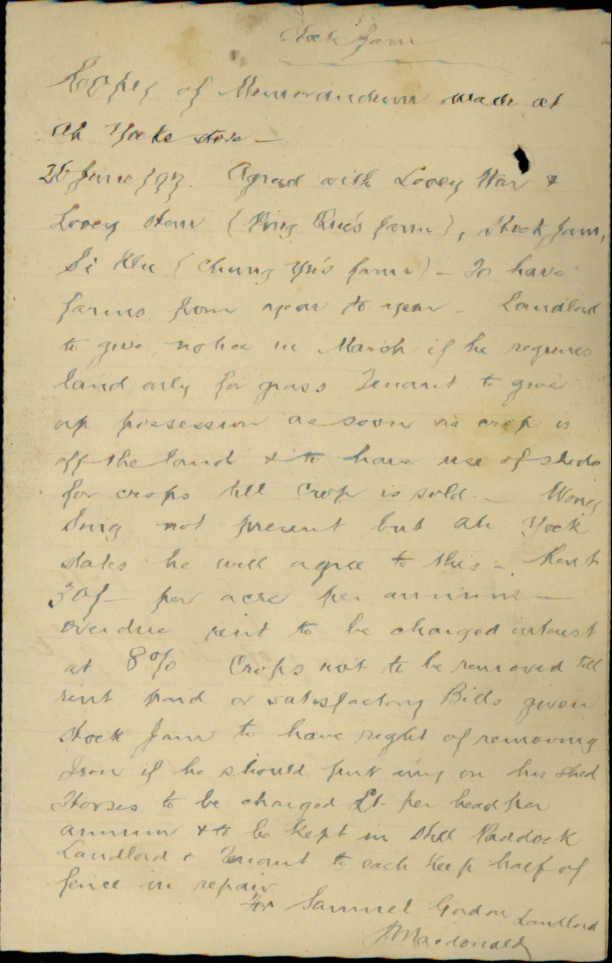 Stock farm
Copy of Memorandum made at
Ah Yocks store —
26 June 1917. Agreed with Looey Wan &
Looey How (Ping Que's farm), Stock Jam,
Si Kee (Chung Yu's farm) — To have
farms from year to year — Landlord
to give notice in March if he requires
land only for grass Tenant to give
up possession as soon as crop is
off the land & to have use of sheds
for crops till Crop is sold. — Wong
Sing not present but Ah Yock
states he will agree to this — Rent
30/- per acre per annum —
overdue rent to be charged interest
at 8% Crops not to be removed till
rent paid or satisfactory Bills given
Stock Jam to have right of removing
Iron if he should put any on his shed
Horses to be charged £1 per head per
annum & to be kept in Still Paddock
Landlord & Tenant to each keep half of
fence in repair
For Samuel Gordon Landlord
Macdonald